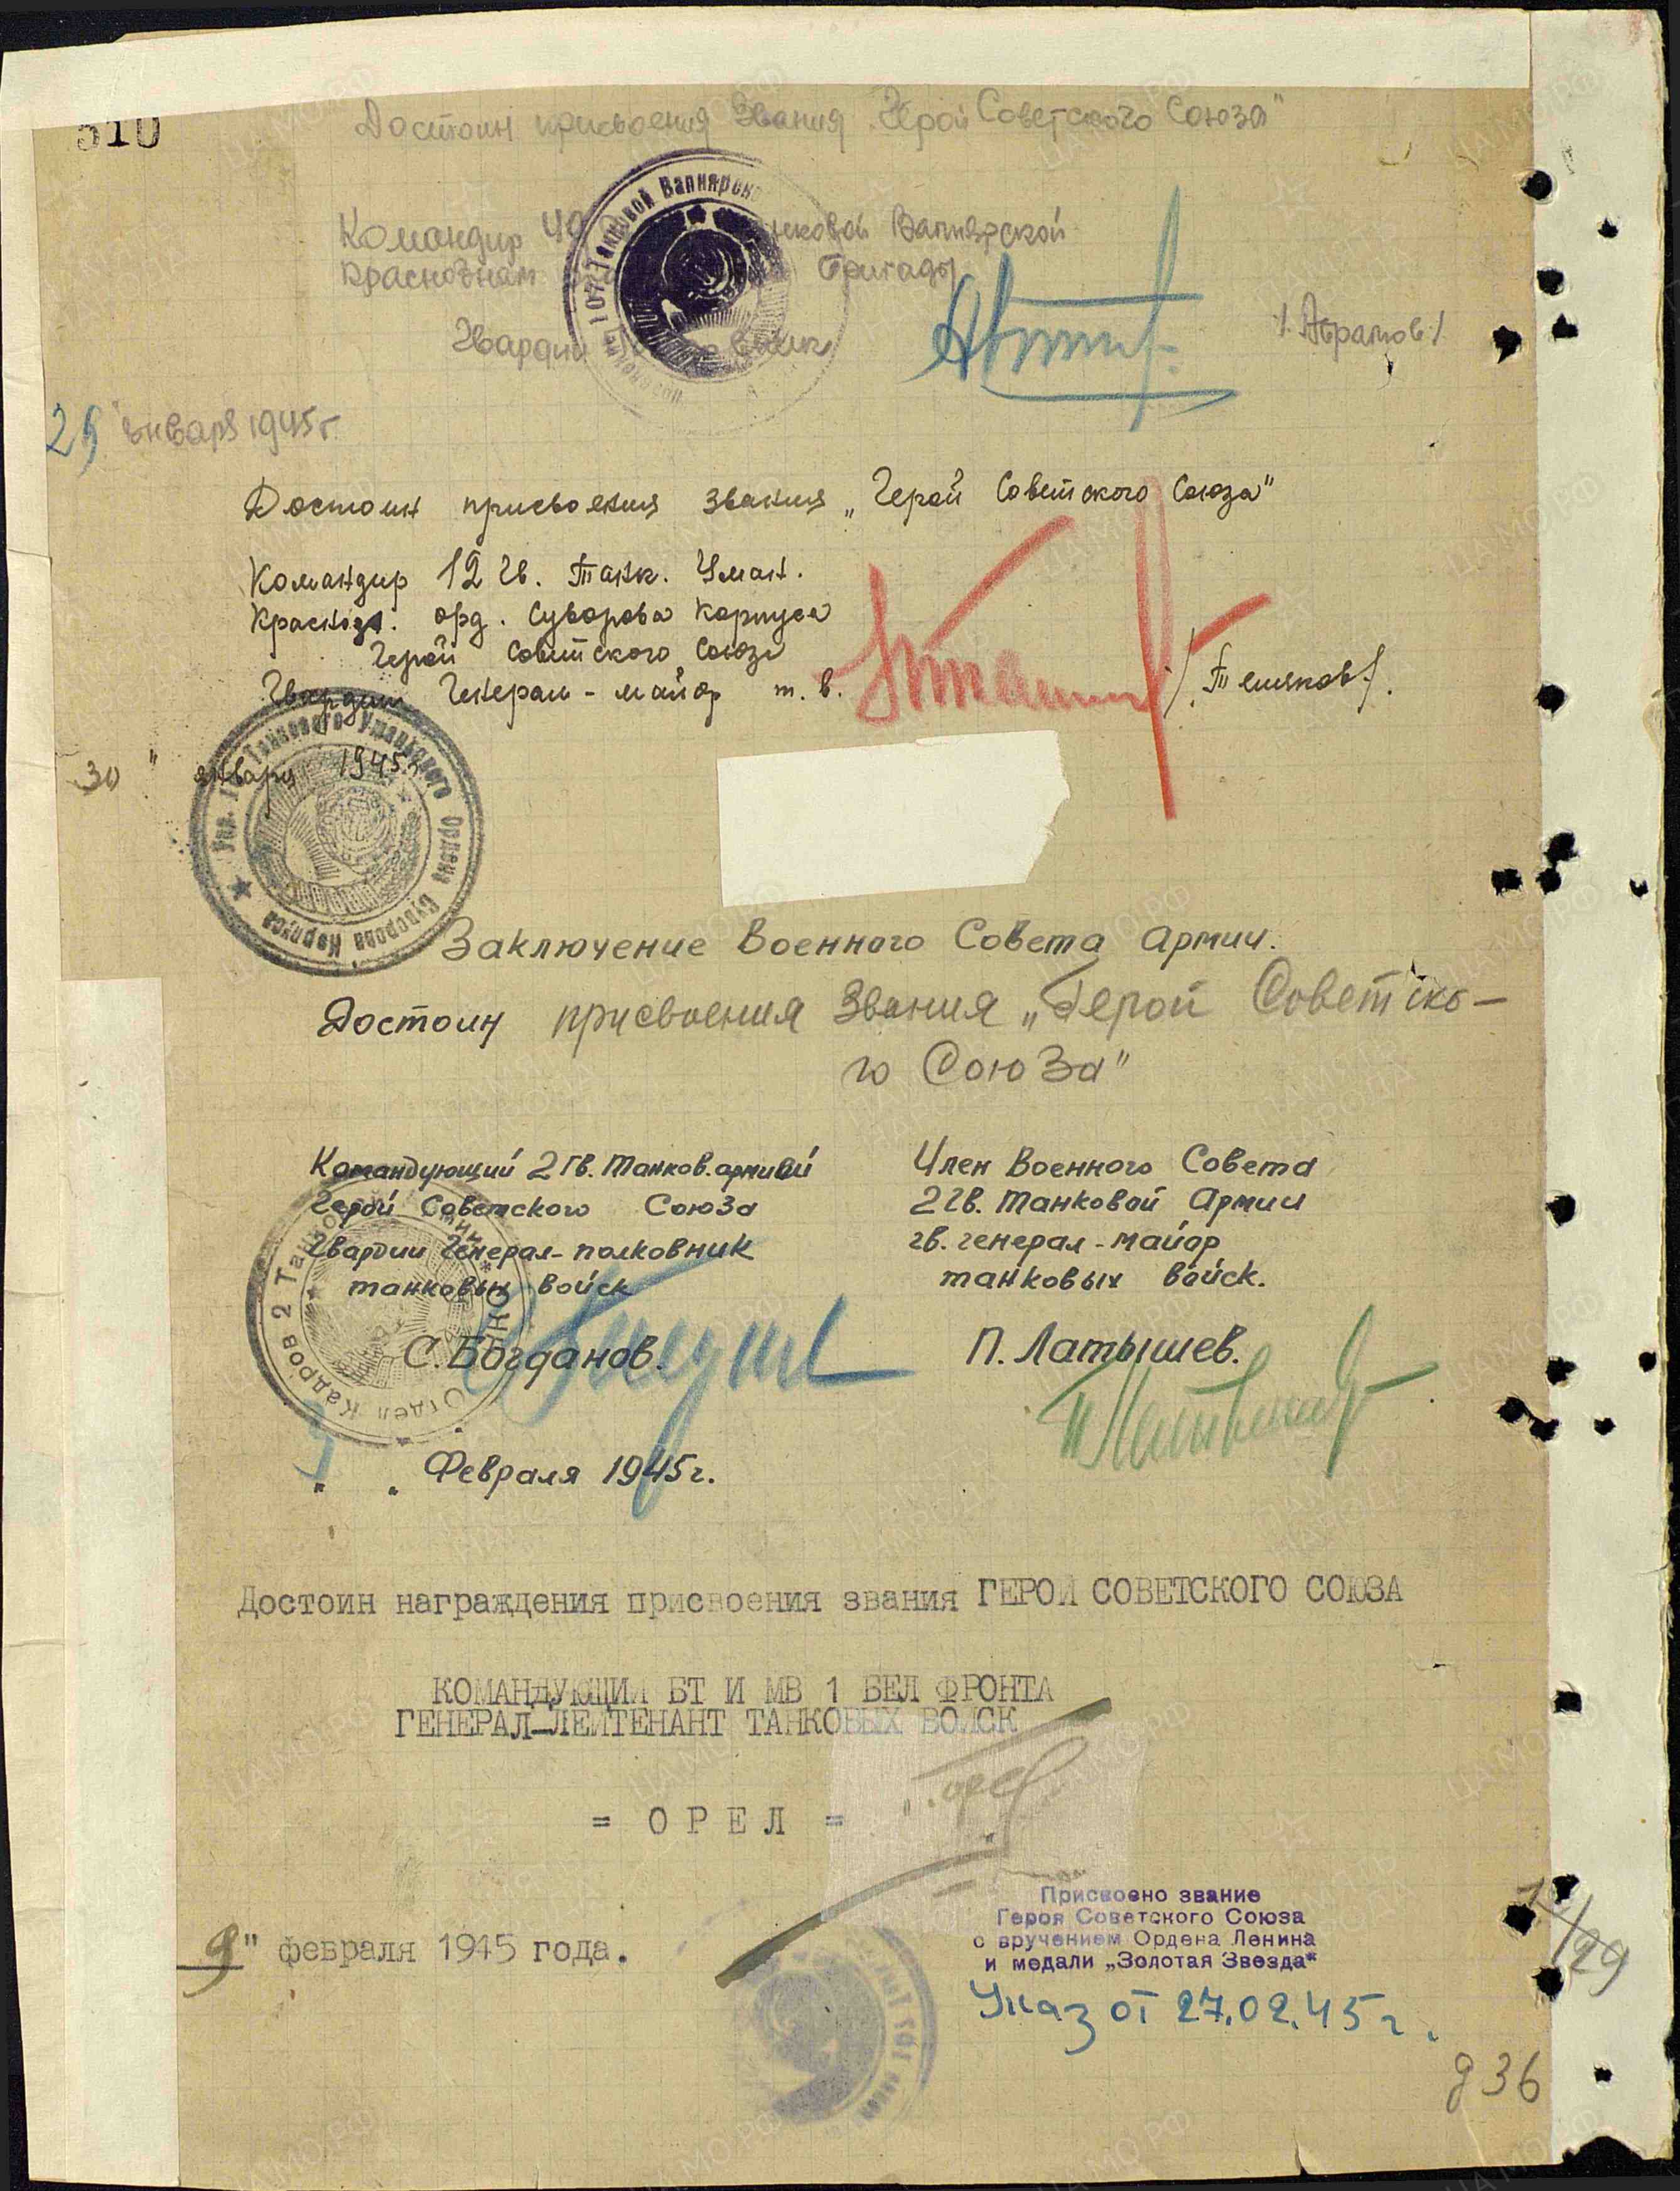 310
Достоин присвоения Звания "Герой Советского Союза"
107 Танковой Вапнярск
Командир 49 нковой Вапнярской
Краснознам бригады
Гвардии
/. Абрамов /
25 января 1945 г.
Достоин присвоения звания „Герой Советского Союза"
Командир 12 Гв. Танк. Уман.
Краснозн. орд. Суворова Корпуса
Герой Советского Союза
Гвардии Генерал-майор т. в. /. Теляков /.
30 " января 1945 г.
Танкового Уманьского Ордена Суворова Корпуса
Заключение Военного Совета Армии.
Достоин присвоения Звания „Герой Советско-
го Союза"
Командующий 2 Гв. Танков. армией
Герой Советского Союза
Гвардии Генерал-полковник
танковых войск
С. Богданов.
Отдел Кадров 2 Танко
Член Военного Совета
2 Гв. Танковой Армии
гв. генерал-майор
танковых войск.
П. Латышев.
" " Февраля 1945 г.
Достоин награждения присвоения звания ГЕРОЙ СОВЕТСКОГО СОЮЗА
КОМАНДУЮЩИЙ БТ И МВ 1 БЕЛ ФРОНТА
ГЕНЕРАЛ-ЛЕЙТЕНАНТ ТАНКОВЫХ ВОЙСК
= ОРЕЛ =
9 " февраля 1945 года.
Присвоено звание
Героя Советского Союза
с вручением Ордена Ленина
и медали „Золотая Звезда"
Указ от 27.02.45 г.
29
д 36
ЦАМО.РФ
ПАМЯТЬ НАРОДА